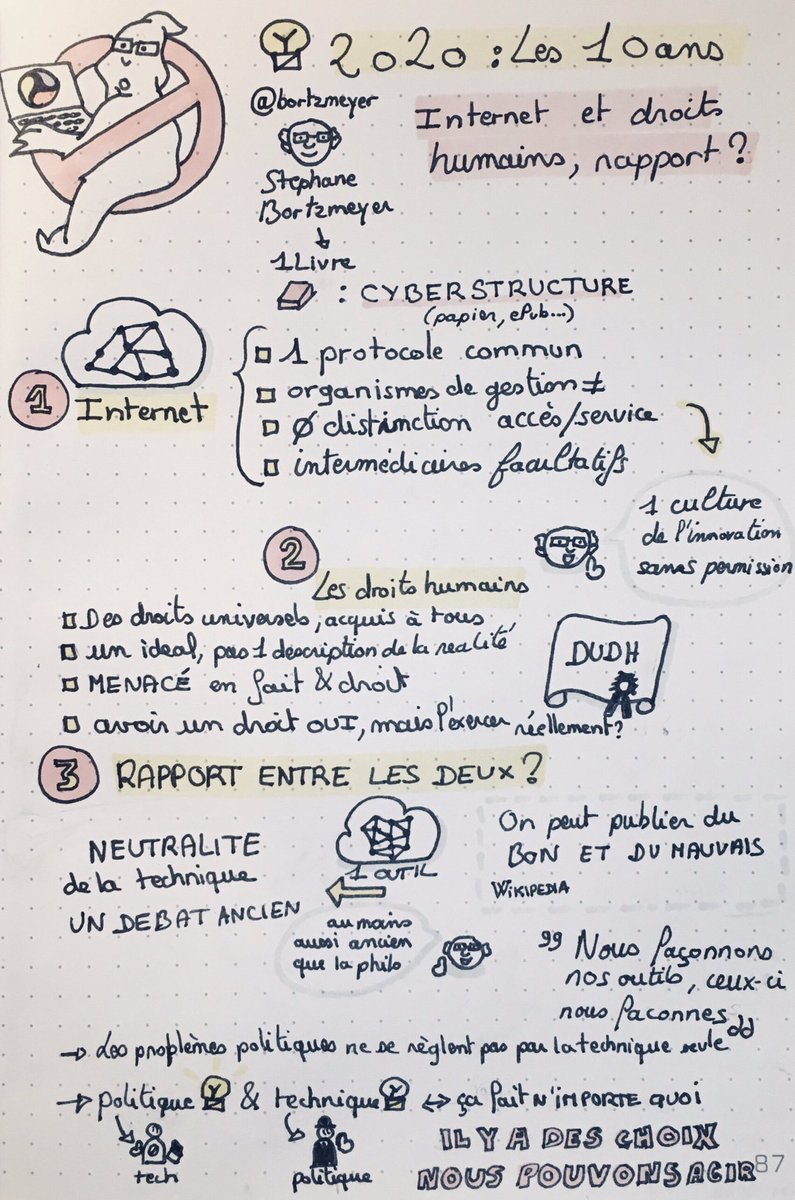 2020 : Les 10 ans
@bortzmeyer
Internet et droits
humains, rapport ?
Stéphane
Bortzmeyer
1 Livre
: CYBERSTRUCTURE
(papier, ePub...)
1 Internet
1 protocole commun
organismes de gestion ≠
Ø distinction accès/service
intermédiaires facultatifs
1 culture
de l'innovation
sans permission
2
Les droits humains
Des droits universels, acquis à tous
un ideal, pas 1 description de la realité
MENACÉ en fait & droit
avoir un droit OUI, mais l'exercer réellement?
DUDH
3 RAPPORT ENTRE LES DEUX ?
NEUTRALITE
de la technique
UN DEBAT ANCIEN
1 OUTIL
au moins
aussi ancien
que la philo
On peut publier du
BON ET DU MAUVAIS
WIKIPEDIA
" Nous façonnons
nos outils, ceux-ci
nous faconnes "
→ Les proplèmes politiques ne se règlent pas par la technique seule
→ politique & technique ↔ ça fait N'IMPORTE QUOI
tech
politique
IL Y A DES CHOIX
NOUS POUVONS AGIR
87